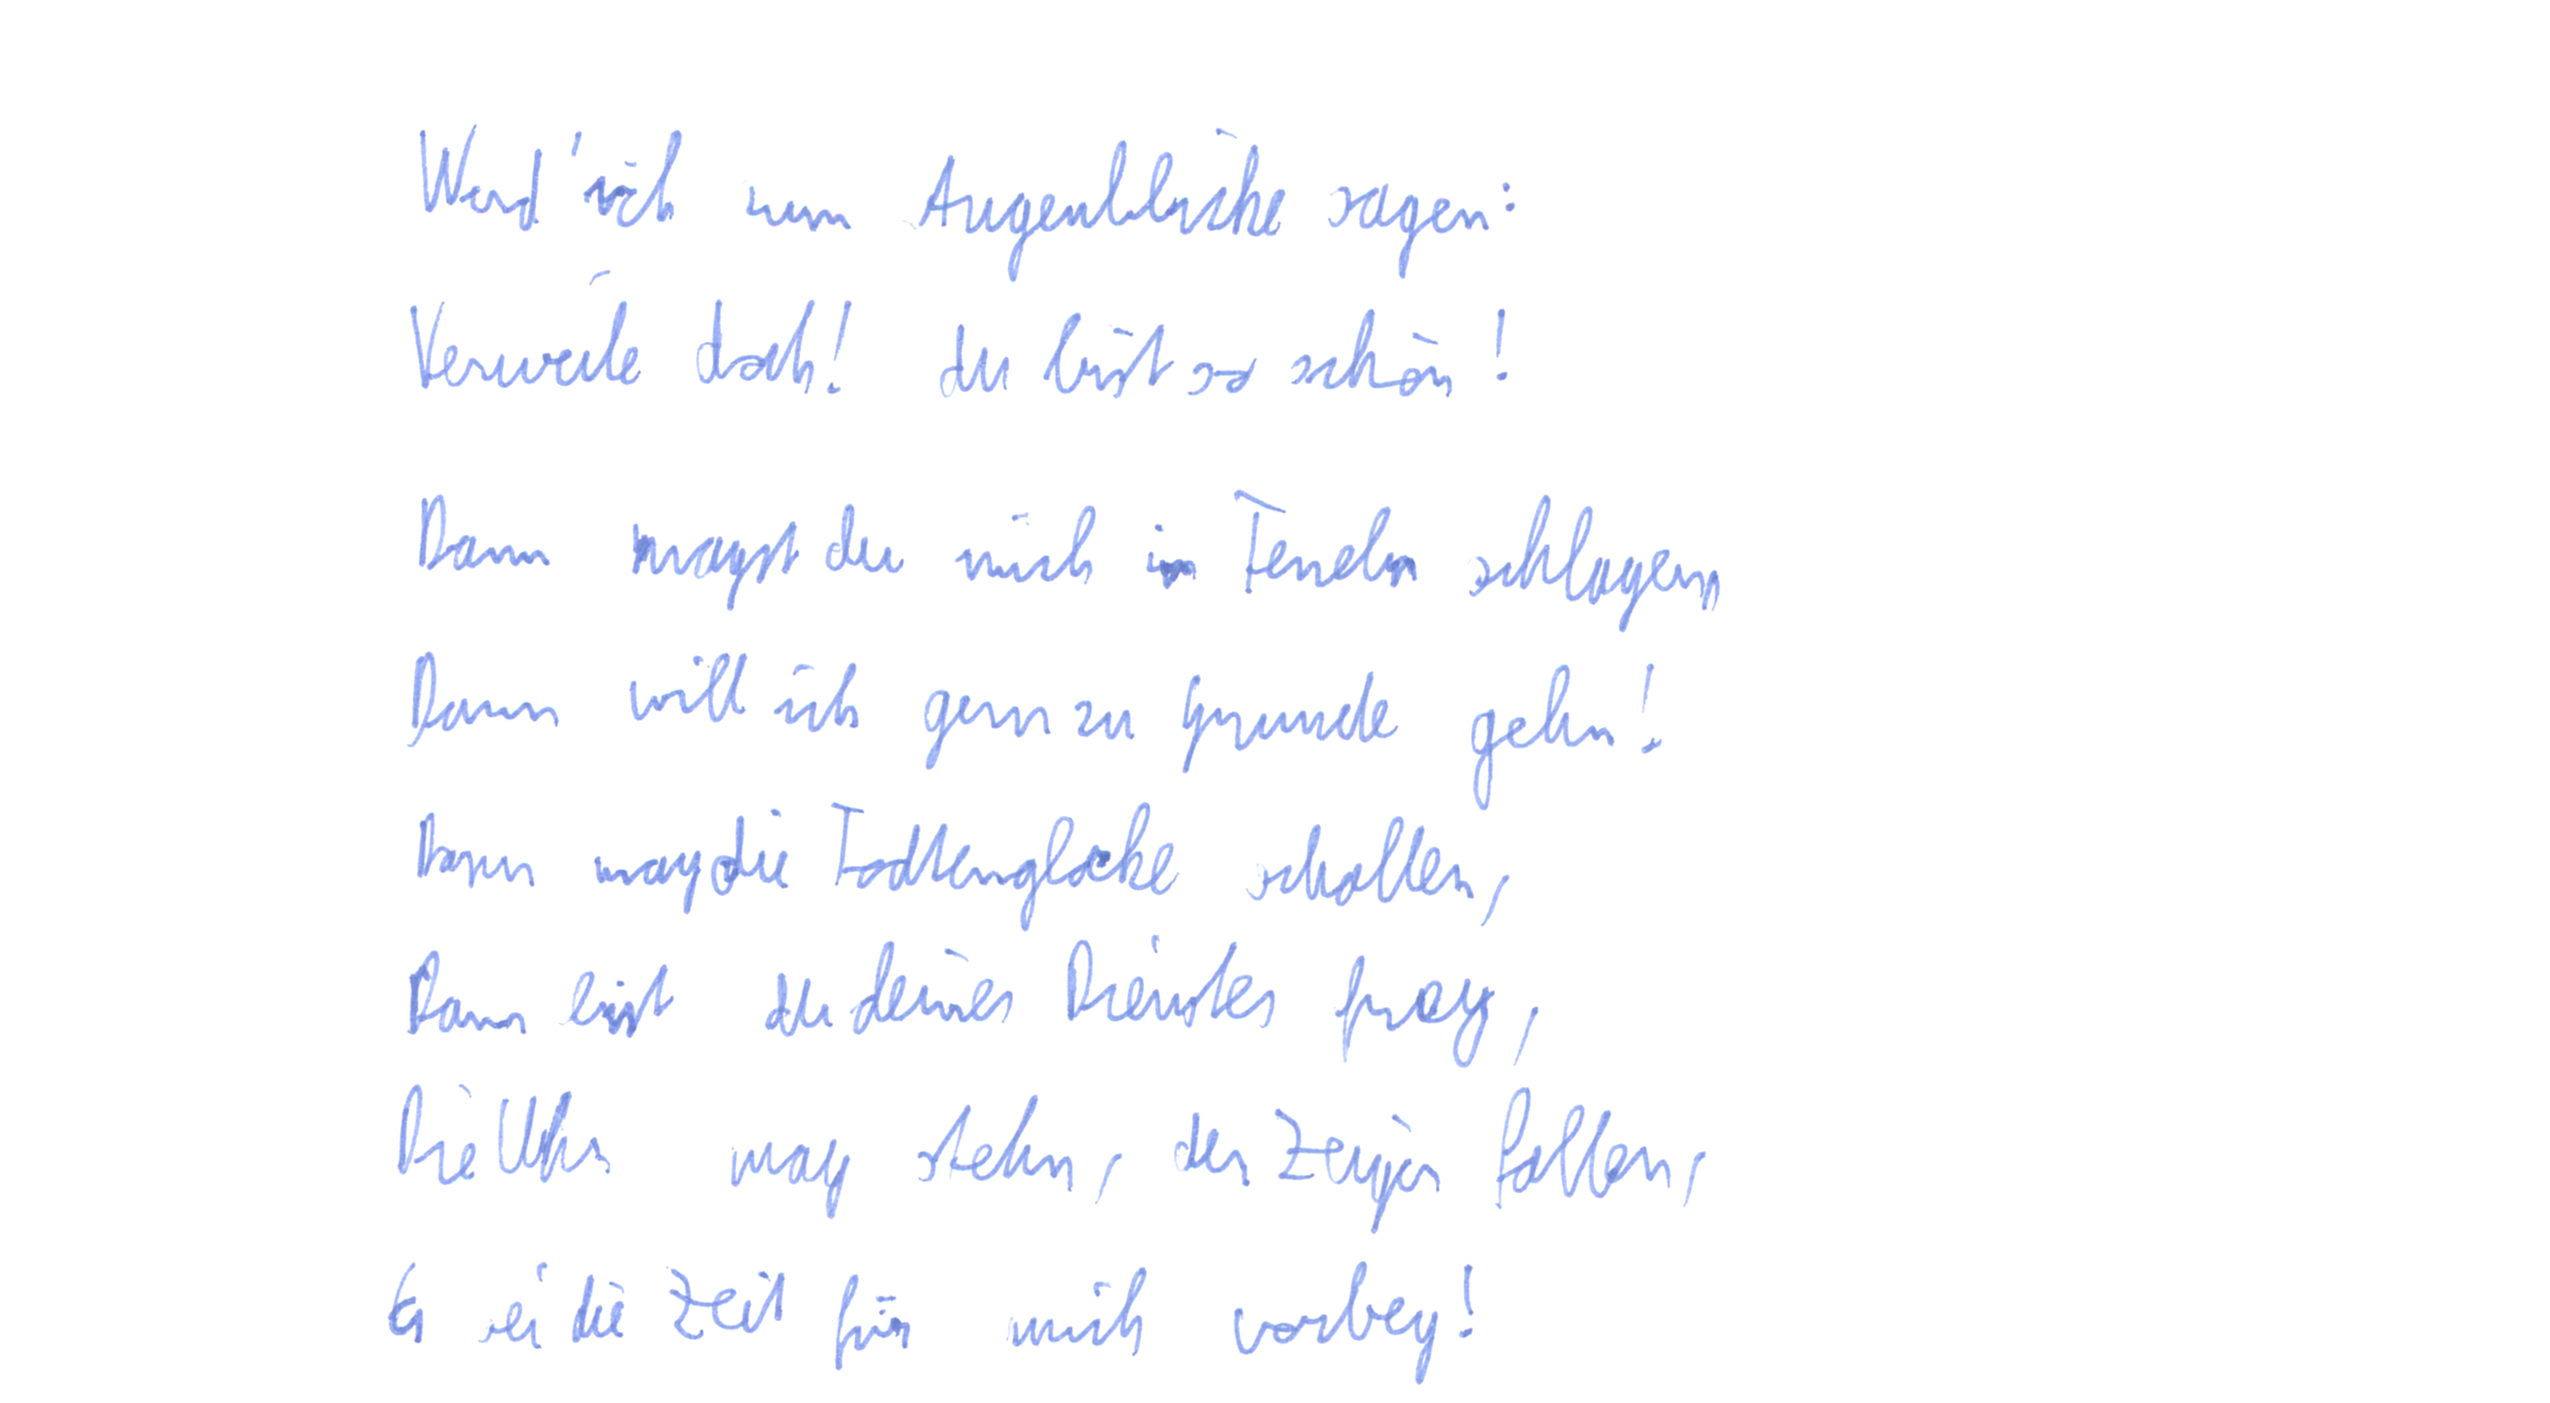 Werd' ich zum Augenblicke sagen:
Verweile doch! du bist so schön!
Dann magst du mich in Fesseln schlagen,
Dann will ich gern zu Grunde gehn!
Dann mag die Todtenglocke schallen,
Dann bist du deines Dienstes frey,
Die Uhr mag stehn, der Zeiger fallen,
Es sei die Zeit für mich vorbey!